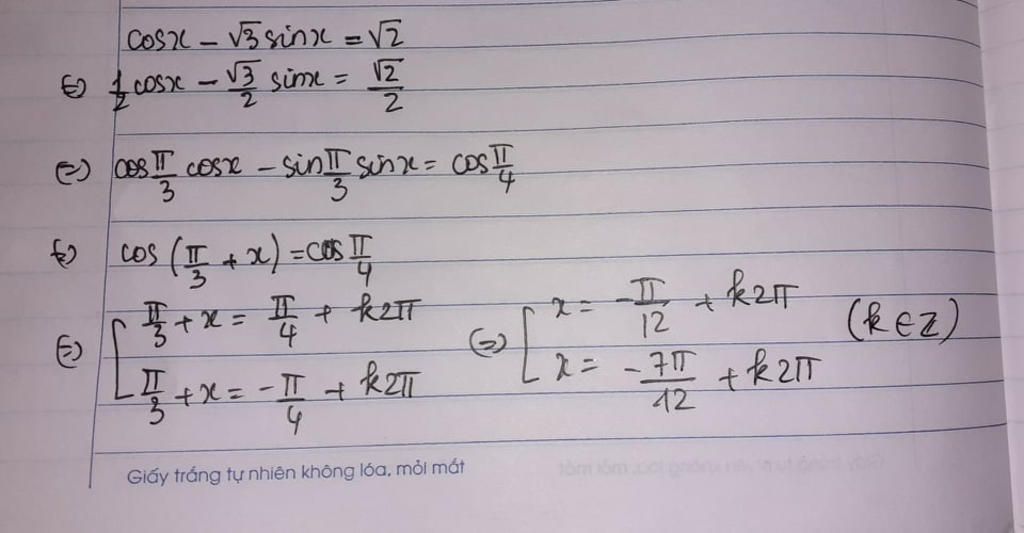 cosx - √3 sinx = √2
⇔ 1/2 cosx - √3/2 sinx = √2/2
⇔ cos π/3 cosx - sin π/3 sinx = cos π/4
⇔ cos (π/3 + x) = cos π/4
⇔ [ π/3 + x = π/4 + k2π ⇔ [ x = -π/12 + k2π (k∈Z)
π/3 + x = -π/4 + k2π x = -7π/12 + k2π
Giấy trắng tự nhiên không lóa, mỏi mắt